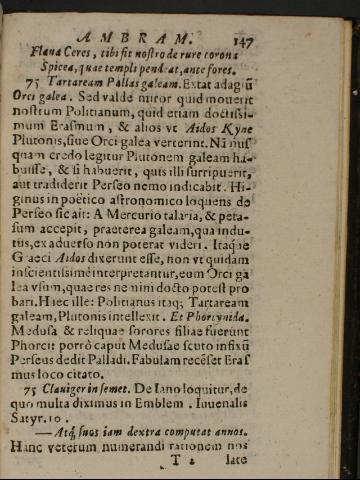 AMBRAM. 147
Flaua Ceres, tibi fit nostro de rure corona
Spicea, quae templi pendeat, ante fores.
75 Tartaream Pallas galeam. Extat adagiū
Orci galea. Sed valde miror quid mouerit
nostrum Politianum, quid etiam doctissi-
mum Erasmum, & alios vt Aidos Kyne
Plutonis, siue Orci galea verterint. Nā nus
quam credo legitur Plutonem galeam ha-
buisse, & si habuerit, quis illi surripuerit,
aut tradiderit Perseo nemo indicabit. Hi-
ginus in poëtico astronomico loquens de
Perseo sic ait: A Mercurio talaria, & peta-
sum accepit, praeterea galeam, qua indu-
tus, ex aduerso non poterat videri. Itaque
Graeci Aidos dixerunt esse, non vt quidam
inscientissimè interpretantur, eum Orci ga
lea vsum, quae res nemini docto potest pro
bari. Haec ille: Politianus itaq; Tartaream
galeam, Plutonis intellexit. Et Phorcynida.
Medusa & reliquae sorores filiae fuerunt
Phorci: porrò caput Medusae scuto infixū
Perseus dedit Palladi. Fabulam recēset Eras
mus loco citato.
75 Clauiger in semet. De Iano loquitur, de
quo multa diximus in Emblem. Iuuenalis
Satyr. 10.
— Atq; suos iam dextra computat annos.
Hanc veterum numerandi rationem nos
T 2 late